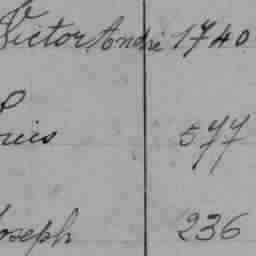 Victor André 1740
Louis 577
Joseph 236